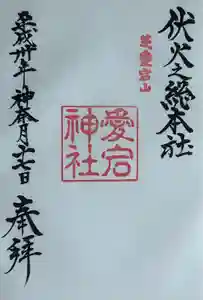 伏火之総本社
芝愛宕山
愛宕
神社
平成卅年 神奈月十七日
奉拝